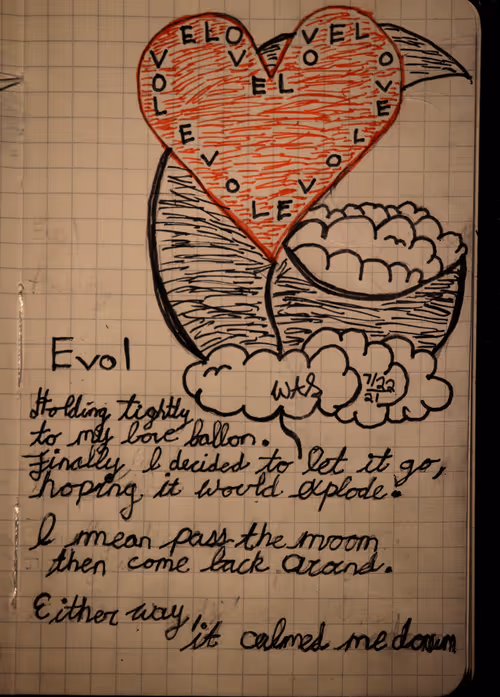 EVOLEVOLEVOLEVOLEVOLEVOL
WAS
7/22
21
Evol
Holding tightly
to my love ballon.
Finally I decided to let it go,
hoping it would explode.
I mean pass the moom
then come back around.
Either way,
it calmed me down